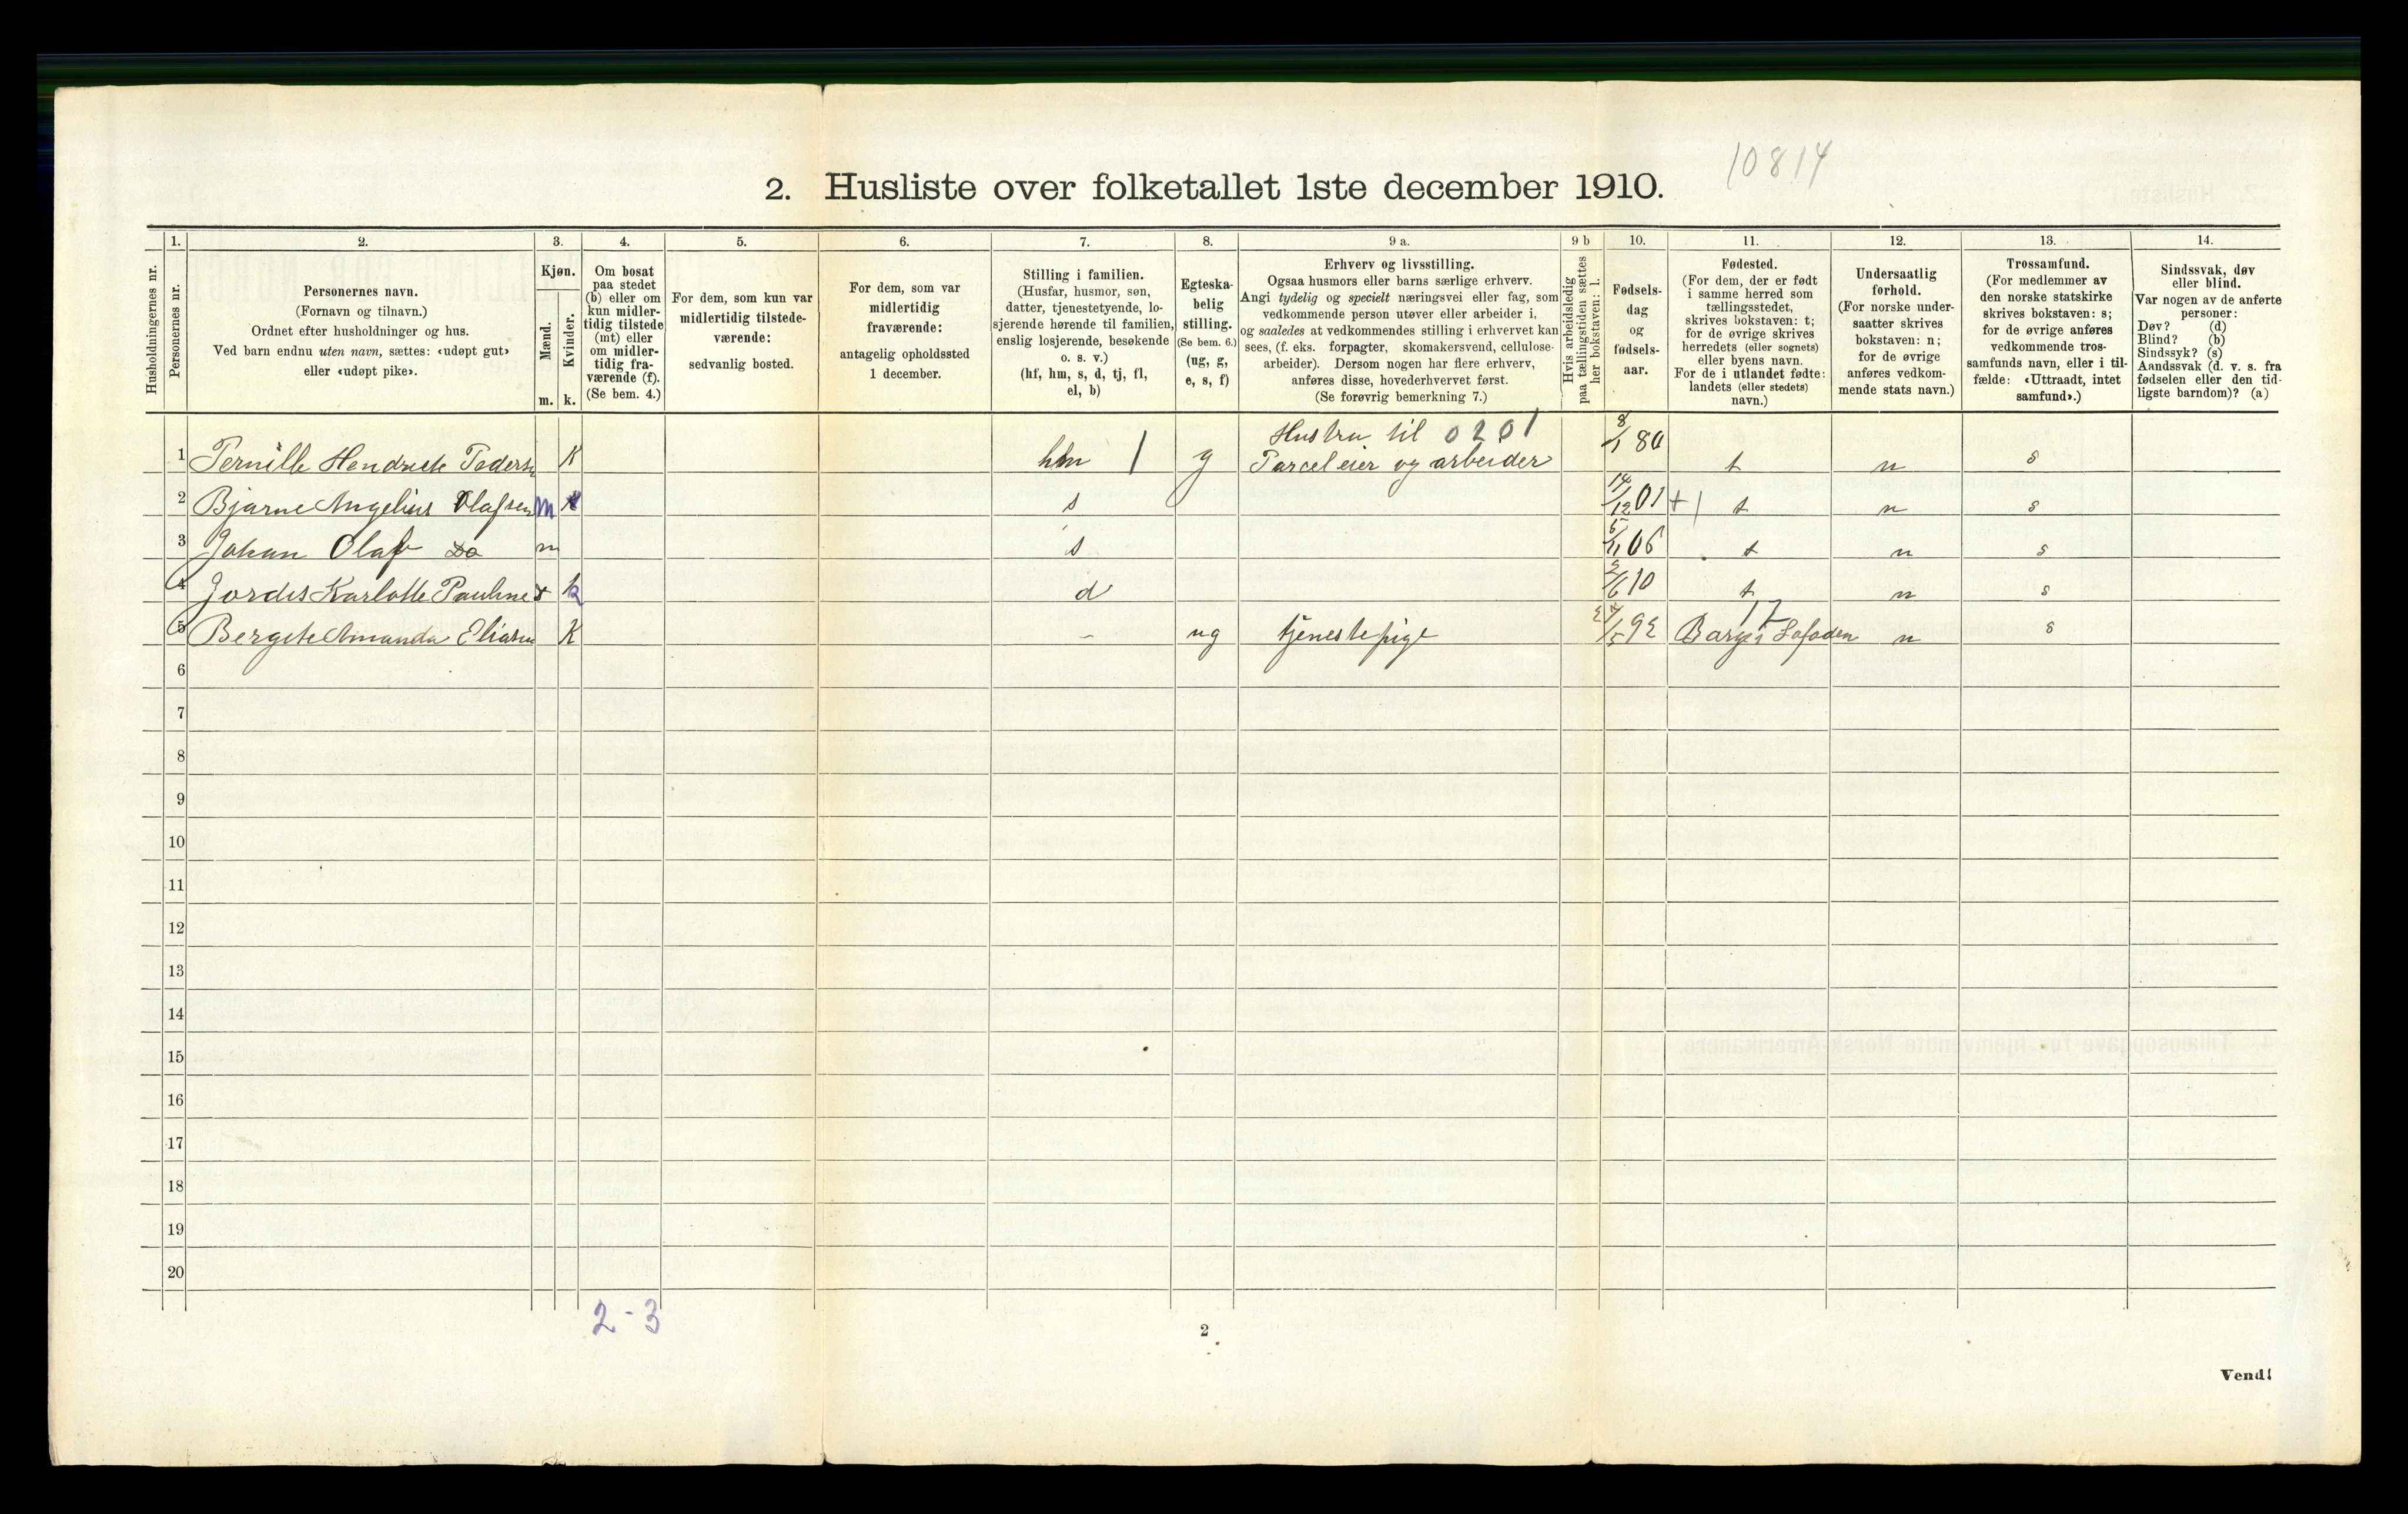 10814
2. Husliste over folketallet 1ste december 1910.
Husholdningernes nr.
1.
Personernes nr.
2.
Personernes navn.
(Fornavn og tilnavn.)
Ordnet efter husholdninger og hus.
Ved barn endnu uten navn, sættes: «udøpt gut»
eller «udøpt pike».
3.
Kjøn.
Mænd.
Kvinder.
m. k.
4.
Om bosat
paa stedet
(b) eller om
kun midler-
tidig tilstede
(mt) eller
om midler-
tidig fra-
værende (f).
(Se bem. 4.)
5.
For dem, som kun var
midlertidig tilstede-
værende:
sedvanlig bosted.
6.
For dem, som var
midlertidig
fraværende:
antagelig opholdssted
1 december.
7.
Stilling i familien.
(Husfar, husmor, søn,
datter, tjenestetyende, lo-
sjerende hørende til familien,
enslig losjerende, besøkende
o. s. v.)
(hf, hm, s, d, tj, fl,
el, b)
8.
Egteska-
belig
stilling.
(Se bem. 6.)
(ug, g,
e, s, f)
9 a.
Erhverv og livsstilling.
Ogsaa husmors eller barns særlige erhverv.
Angi tydelig og specielt næringsvei eller fag, som
vedkommende person utøver eller arbeider i,
og saaledes at vedkommendes stilling i erhvervet kan
sees, (f. eks. forpagter, skomakersvend, cellulose-
arbeider). Dersom nogen har flere erhverv,
anføres disse, hovederhvervet først.
(Se forøvrig bemerkning 7.)
9 b
Hvis arbeidsledig
paa tællingstiden sættes
her bokstaven: l.
10.
Fødsels-
dag
og
fødsels-
aar.
11.
Fødested.
(For dem, der er født
i samme herred som
tællingsstedet,
skrives bokstaven: t;
for de øvrige skrives
herredets (eller sognets)
eller byens navn.
For de i utlandet fødte:
landets (eller stedets)
navn.)
12.
Undersaatlig
forhold.
(For norske under-
saatter skrives
bokstaven: n;
for de øvrige
anføres vedkom-
mende stats navn.)
13.
Trossamfund.
(For medlemmer av
den norske statskirke
skrives bokstaven: s;
for de øvrige anføres
vedkommende tros-
samfunds navn, eller i til-
fælde: «Uttraadt, intet
samfund».)
14.
Sindssvak, døv
eller blind.
Var nogen av de anførte
personer:
Døv? (d)
Blind? (b)
Sindssyk? (s)
Aandssvak (d. v. s. fra
fødselen eller den tid-
ligste barndom)? (a)
Hustru til 0201
1 Pernille Hendrikte Peders K hm 1 g Parceleier og arbeider 8/1 80 t n s
2 Bjarne Angelius Olafsen m s 14/12 01 +1 t n s
3 Johan Olaf Do m s 5/11 06 t n s
4 Jordis Karlotte Pauline k d 2/6 10 t n s
17
5 Bergete Amanda Eliasen K - ug tjenestepige 24/5 92 Barge i Lofoden n s
6
7
8
9
10
11
12
13
14
15
16
17
18
19
20
2 - 3
2
Vend!